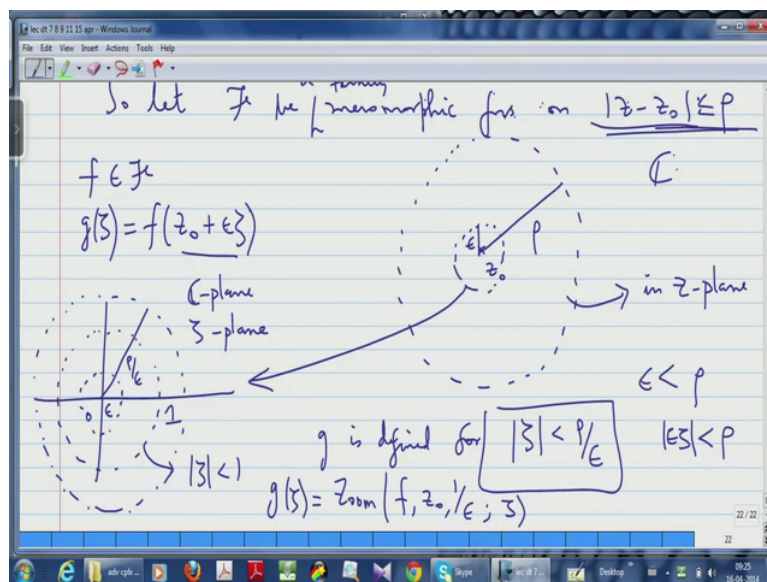 lec dt 7 8 9 11 15 apr - Windows Journal
File Edit View Insert Actions Tools Help
a family
So let ℱ be meromorphic fns on |z - z₀| ≤ ρ
f ∈ ℱ
ℂ
g(ζ) = f(z₀ + εζ)
ε
ρ
z₀
ℂ-plane
in z-plane
ζ-plane
ρ/ε
ε < ρ
0 ε 1
g is defined for |ζ| < ρ/ε
|εζ| < ρ
|ζ| < 1
g(ζ) = Zoom (f, z₀, 1/ε; ζ)
22 / 22
22
adv cplx ...
Skype
lec dt 7 ...
Desktop
09:25
16-04-2014